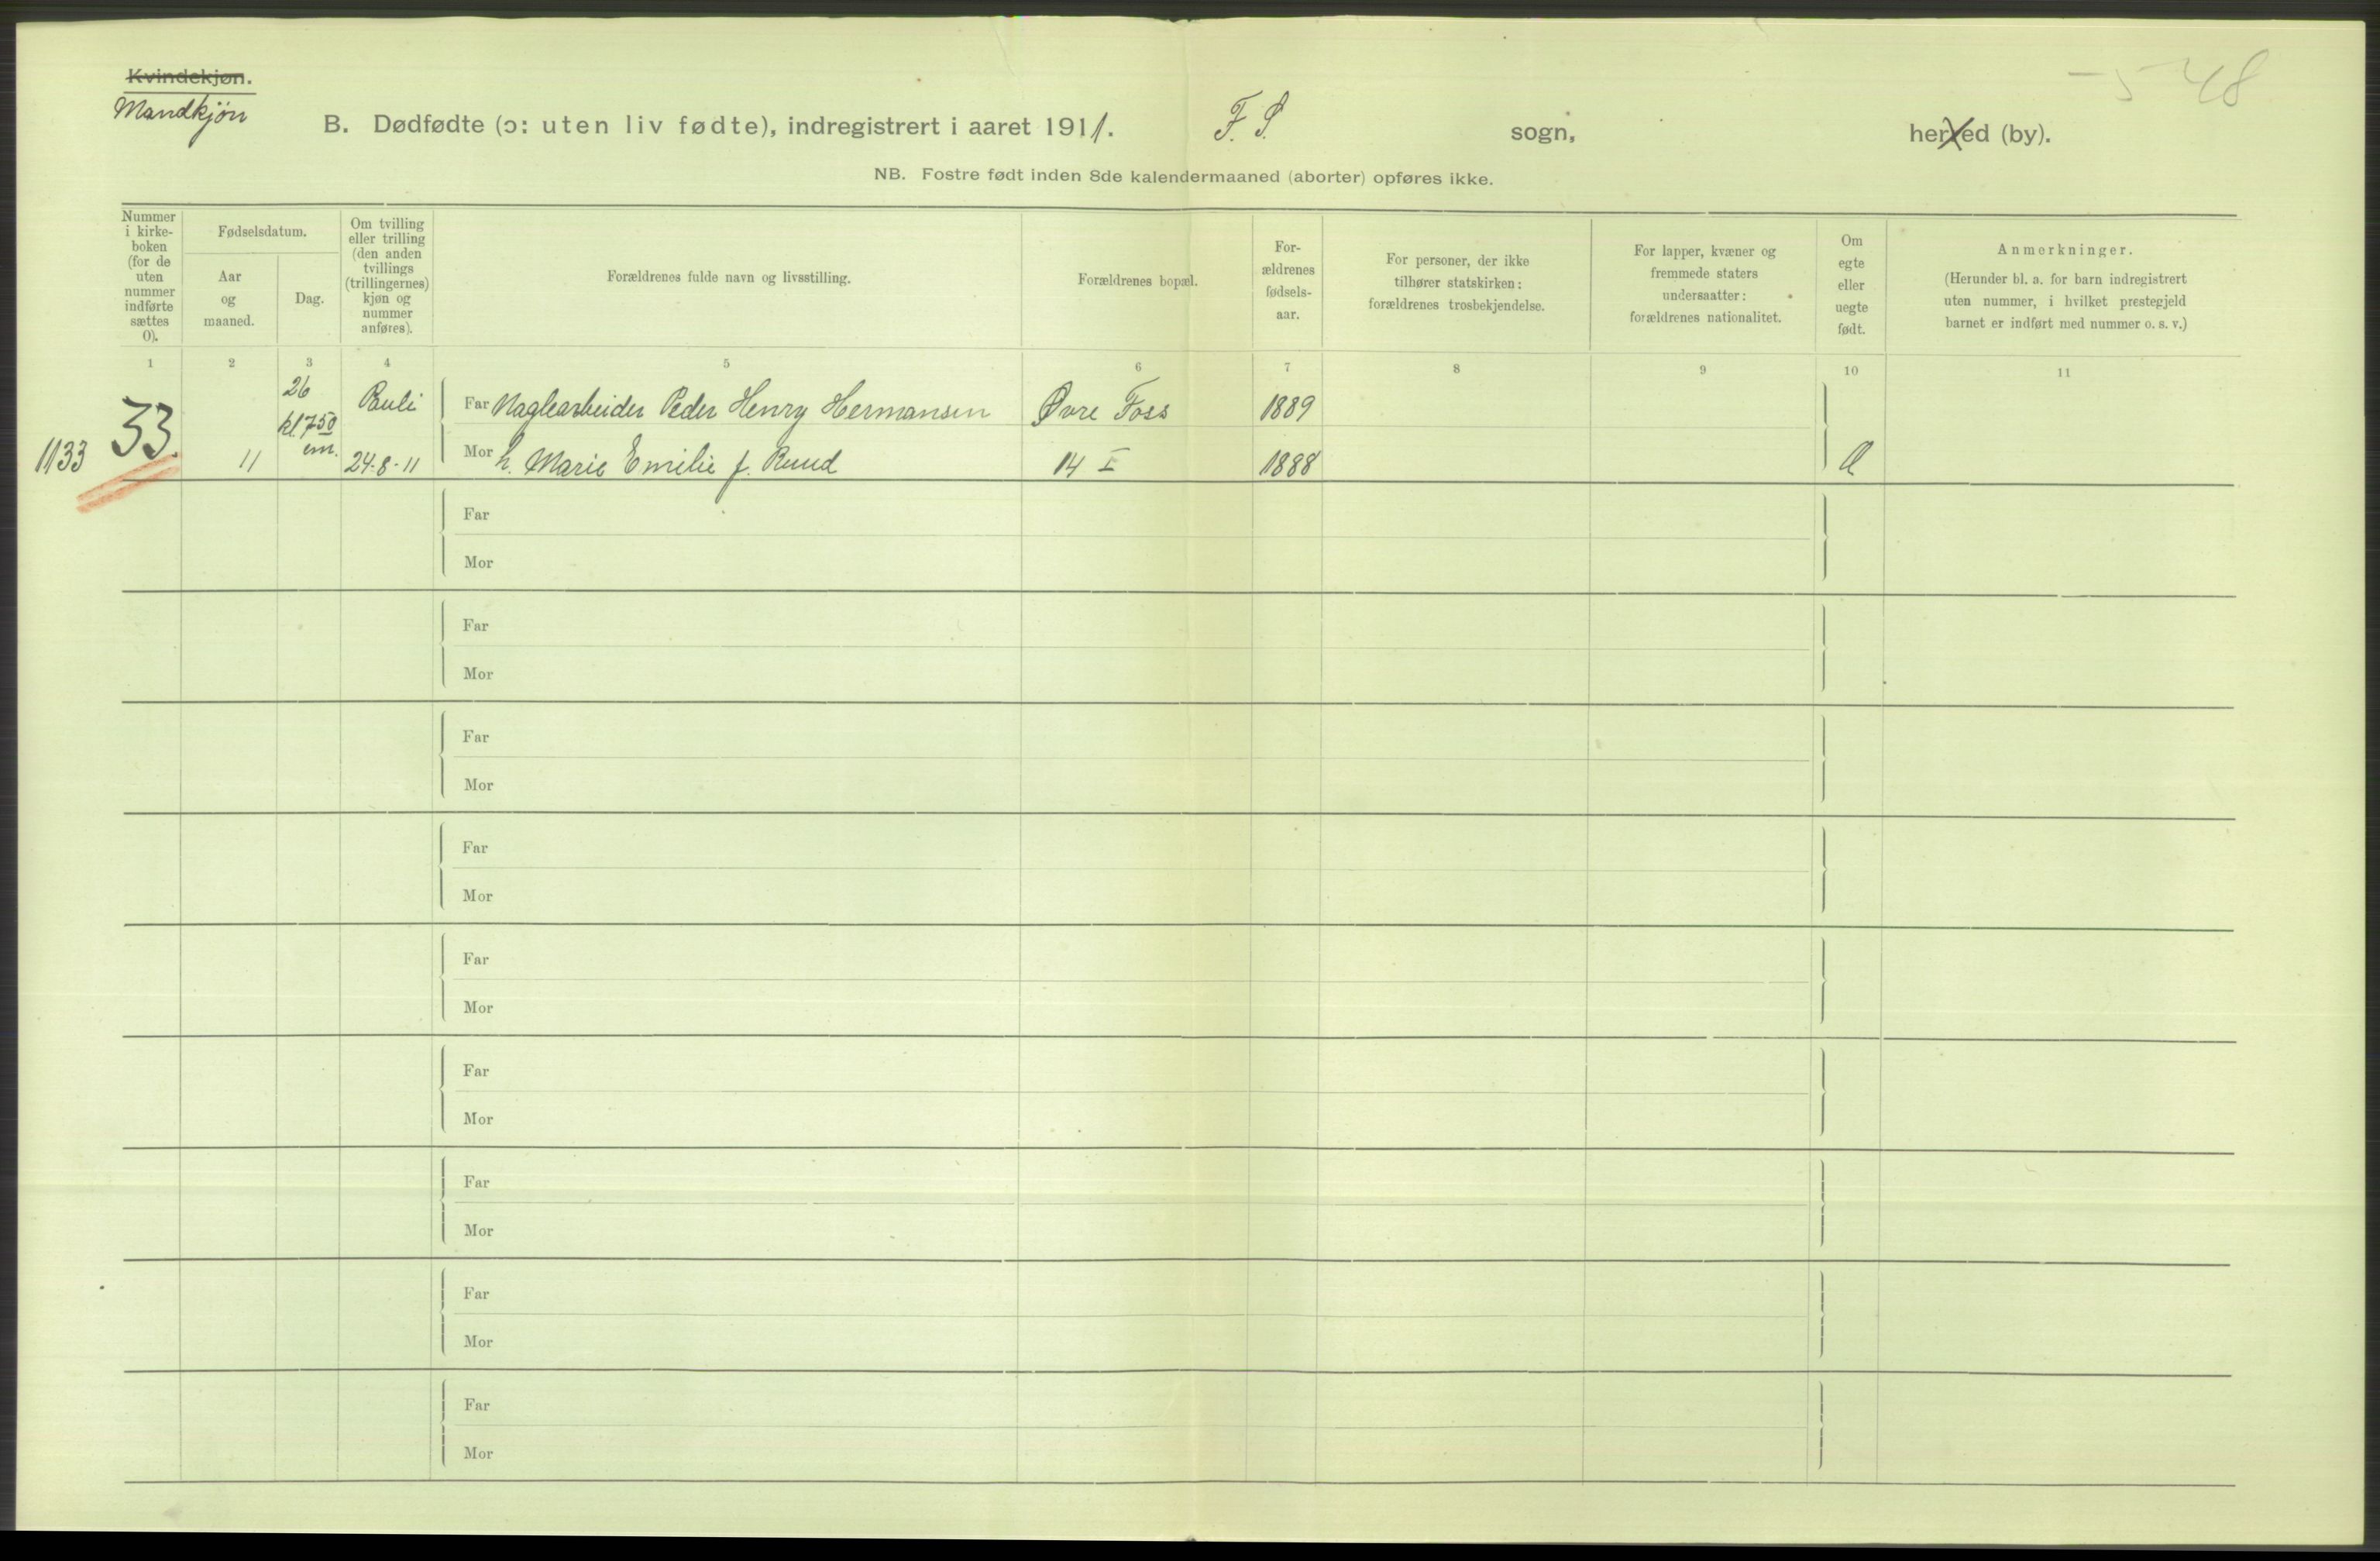 Kvindekjøn.
Mandkjön
B. Dødfødte (ɔ: uten liv fødte), indregistrert i aaret 1911. F. S. sogn, herred (by).
NB. Fostre født inden 8de kalendermaaned (aborter) opføres ikke.
48
Nummer i kirke-
boken
(for de
uten
nummer
indførte
sættes
0).
Fødselsdatum.
Aar
og
maaned.
Dag.
Om tvilling
eller trilling
(den anden
tvillings
(trillingernes)
kjøn og
nummer
anføres).
Forældrenes fulde navn og livsstilling.
Forældrenes bopæl.
For-
ældrenes
fødsels-
aar.
For personer, der ikke
tilhører statskirken:
forældrenes trosbekjendelse.
For lapper, kvæner og
fremmede staters
undersaatter:
forældrenes nationalitet.
Om
egte
eller
uegte
født.
Anmerkninger.
(Herunder bl. a. for barn indregistrert
uten nummer, i hvilket prestegjeld
barnet er indført med nummer o. s. v.)
1 2 3 4 5 6 7 8 9 10 11
1133
33.
11
26
kl. 7 50
em.
Pauli
24-8-11
Far Naglearbeider Peder Henry Hermansen Øvre Foss 1889
Mor h. Marie Emilie f. Ruud 14 I 1888
Far
Mor
Far
Mor
Far
Mor
Far
Mor
Far
Mor
Far
Mor
Far
Mor
Far
Mor
Far
Mor